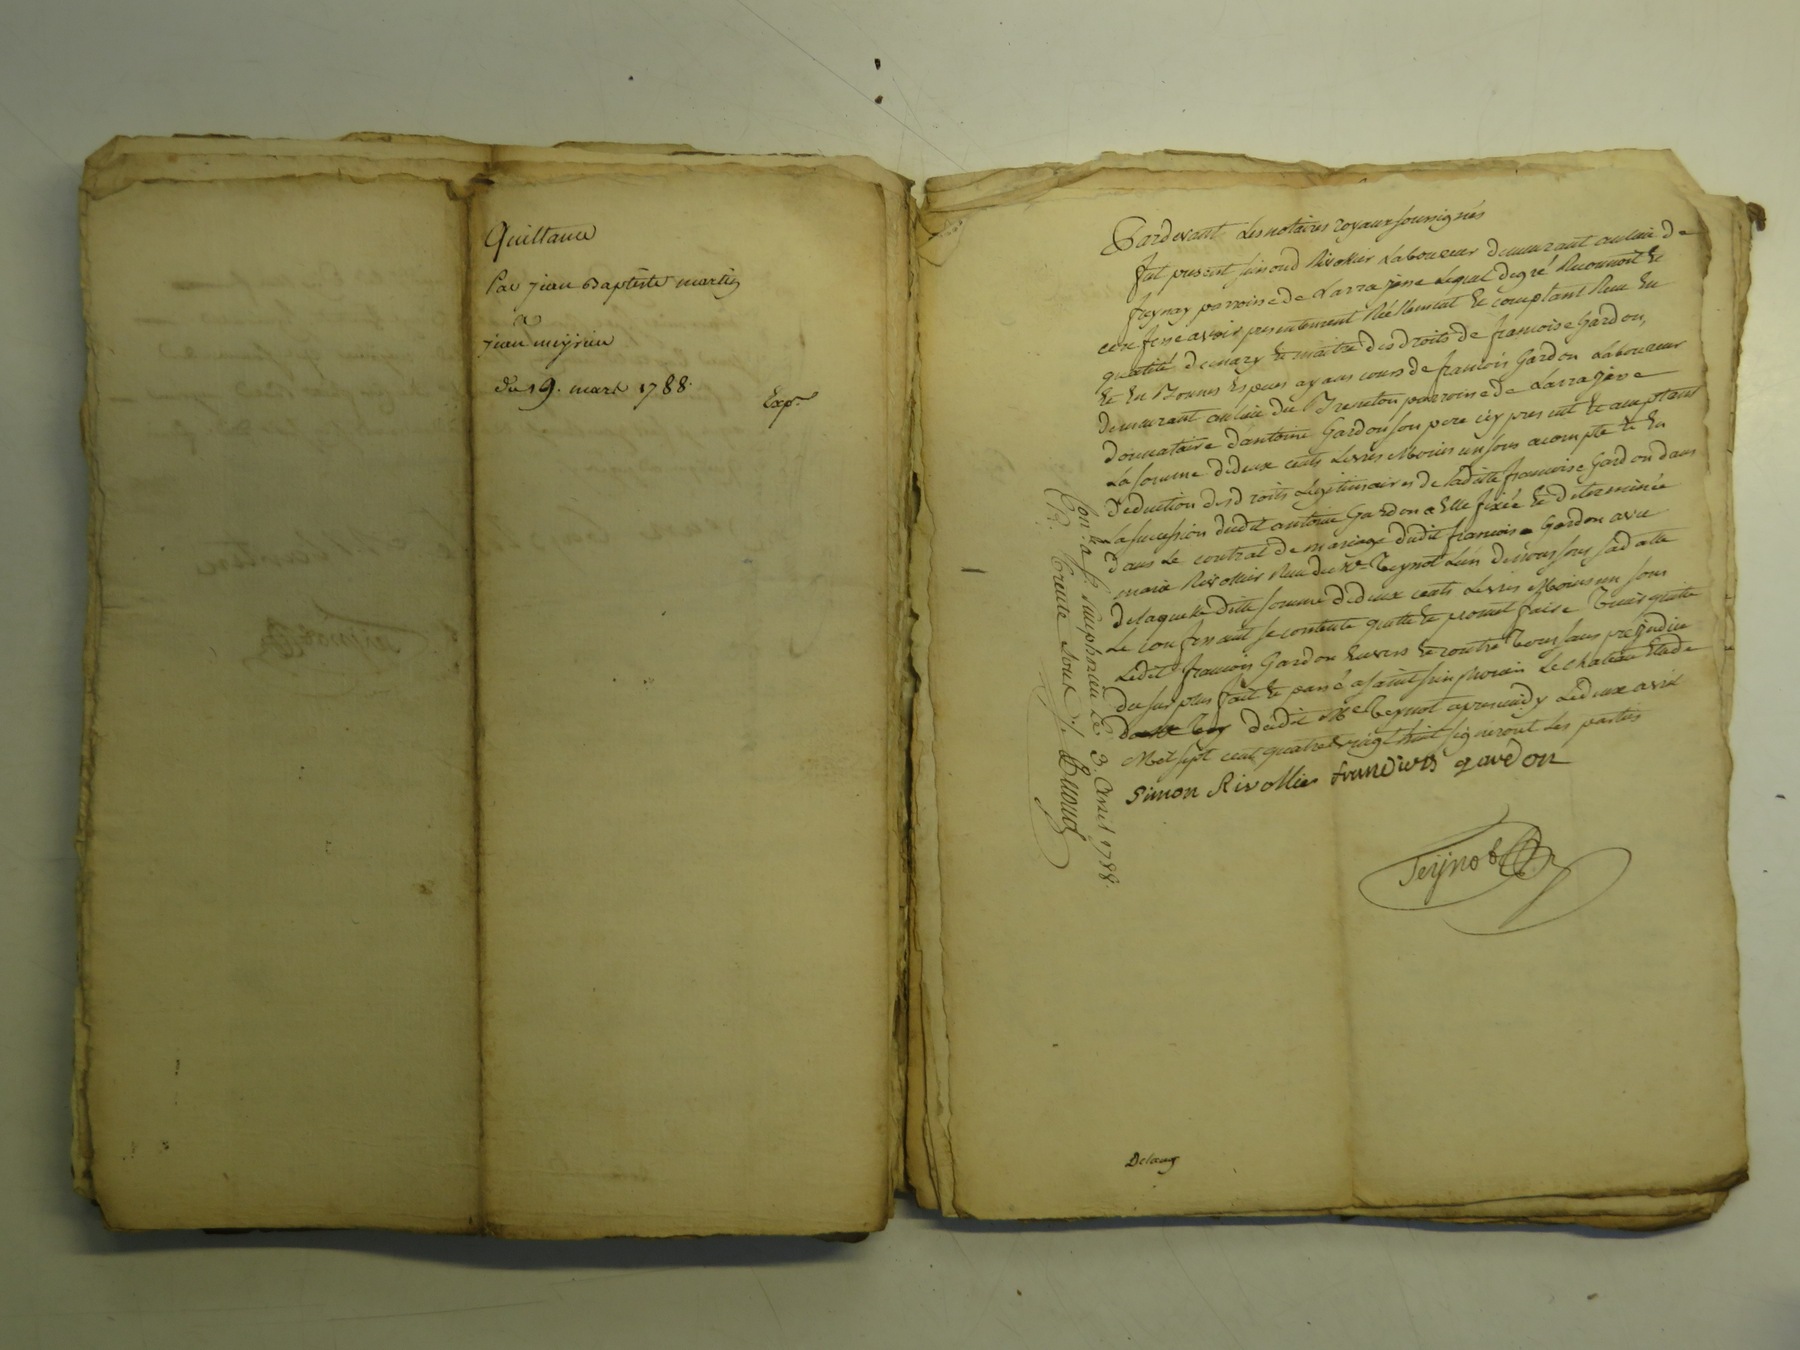 Quittance
Par jean Baptiste martin
a
jean meyrieu
du 19. mars 1788.
Exp.
Pardevant Les notaires royaux soussignés
fut present simond Rivollier Laboureur demeurant au lieu de
paroisse de Larrajasse Lequel de gré Reconnoit &
confesse avoir presentement Réellement & comptant Reçu En
qualité de mary & maitre des droits de francoise Gardon,
& En Bonnes Especes ayans cours de francois Gardon Laboureur
demeurant au lieu du paroisse de Larrajasse
donnataire d'antoine Gardon son pere icy present & acceptant
La somme de deux cents Livres Moins un sous acompte & En
déduction des droits Legitimaires de Laditte francoise Gardon dans
La succession dudit antoine Gardon a Elle fixée & determinée
dans Le contrat de mariage dudit francois Gardon avec
marie Rivollier Reçu du Me Teynot L'un de nous sous sa datte
de laquelle ditte somme de deux cents Livres Moins un sous
Le confessant se contente quitte & promet faire Tenir quitte
Ledit francois Gardon Envers & contre Tous sans prejudice
du surplus fait & passé a saint simphorien Le chateau Etude
dudit Me Teynot apres midy Le deux avril
Mil sept cent quatre vingt huit signeront Les parties
Simon Rivollier francois gardon
Teynot
Con.lé a St. simphorien Le 3. Avril 1788.
R. trente sous